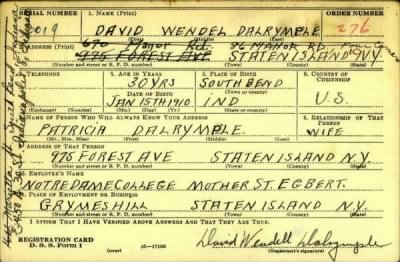 SERIAL NUMBER 1. NAME (Print) ORDER NUMBER
019 DAVID WENDEL DALRYMPLE 276
(First) (Middle) (Last)
2. ADDRESS (Print) 670 Manor Rd. 86 MANOR RD.
976 FOREST AVE STATEN ISLAND N.Y.
(Number and street or R. F. D. number) (Town) (County) (State)
3. TELEPHONE 4. AGE IN YEARS 5. PLACE OF BIRTH 6. COUNTRY OF CITIZENSHIP
30 YRS SOUTH BEND
DATE OF BIRTH (Town or county)
JAN 15TH 1910 IND U.S.
(Exchange) (Number) (Mo.) (Day) (Yr.) (State or country)
7. NAME OF PERSON WHO WILL ALWAYS KNOW YOUR ADDRESS 8. RELATIONSHIP OF THAT PERSON
PATRICIA DALRYMPLE WIFE
(Mr., Mrs., Miss) (First) (Middle) (Last)
9. ADDRESS OF THAT PERSON
976 FOREST AVE STATEN ISLAND N.Y.
(Number and street or R. F. D. number) (Town) (County) (State)
10. EMPLOYER'S NAME
NOTRE DAME COLLEGE MOTHER ST. EGBERT.
11. PLACE OF EMPLOYMENT OR BUSINESS
GRYMES HILL STATEN ISLAND N.Y.
(Number and street or R. F. D. number) (Town) (County) (State)
I AFFIRM THAT I HAVE VERIFIED ABOVE ANSWERS AND THAT THEY ARE TRUE.
REGISTRATION CARD
D. S. S. FORM 1 (over) 16-17105 David Wendell Dalrymple
(Registrant's signature)